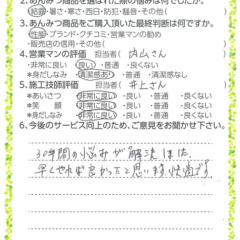 2.あんみつ商品を選ばれた際の悩みは何でしたか。
結露・暑さ・寒さ・西日・防犯・騒音・その他( )
3.あんみつ商品をご購入頂いた最終判断は何ですか。
性能・ブランド・クチコミ・営業マンの勧め
販売店の信用・その他( )
4.営業マンの評価 担当者( 内山さん )
*あいさつ 非常に良い・良い・普通・良くない
*身だしなみ 清潔感あり・普通・清潔感なし
5.施工技師評価 担当者( 井上さん )
*あいさつ 非常に良い・良い・普通・良くない
*笑顔 非常に良い・良い・普通・良くない
*身だしなみ 非常に良い・良い・普通・良くない
6.今後のサービス向上のため、ご意見をお聞かせ下さい。
30年間の悩みが解決した。
早くやれば良かったと思います。快適です。